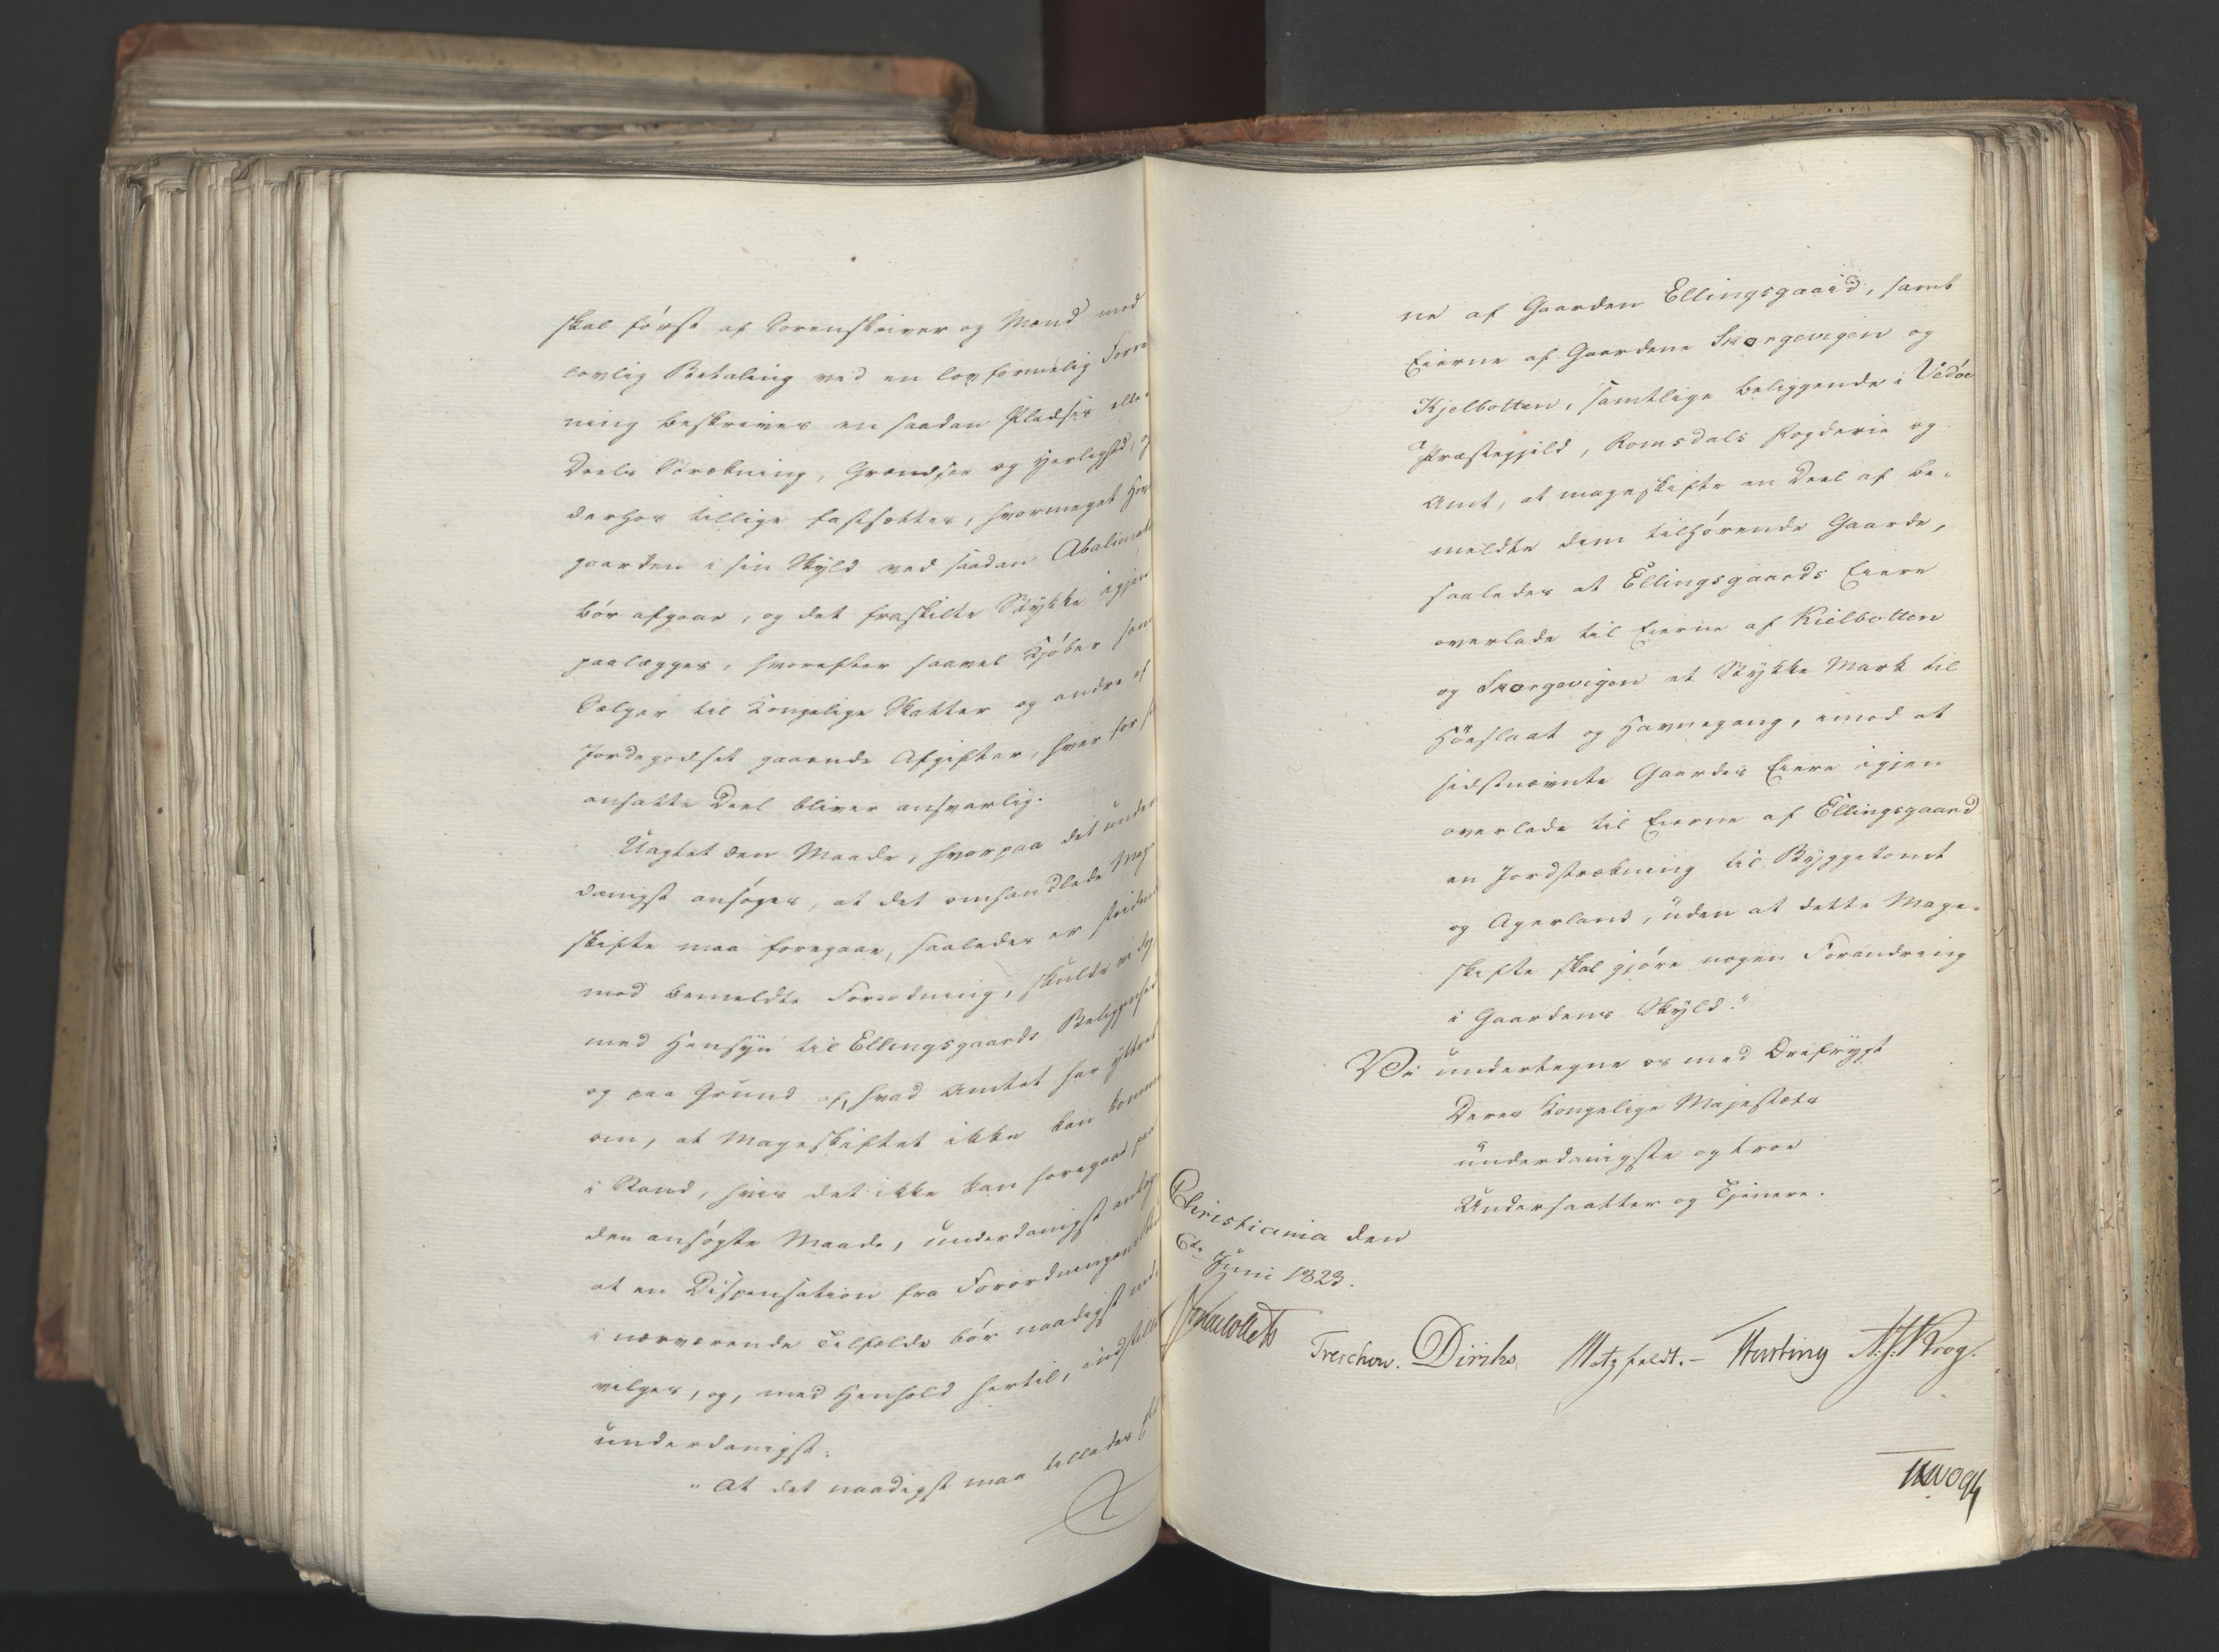 skal først af Sorenskriver og Mænd mod
lovlig Betaling ved en lovformelig Forre
ning beskrives en saadan Pladses eller
Deels Strækning, Grændser og Herlighed, og
derhos tillige fastsættes, hvormeget Hoved
gaarden i sin Skyld ved saadan Abalienat
bør afgaae, og det fraskilte Stykke igjen
paalægges, hvorefter saavel Kjøber som
Sælger til Kongelige Skatter og andre af
Jordegodset gaaende Afgifter, hver for s
ansatte Deel bliver ansvarlig.
Uagtet den Maade, hvorpaa det under
danigst ansøges, at det omhandlede Mage
skifte maa foregaae, saaledes er stridende
mod bemeldte Forordning, skulde vi dog
med Hensyn til Ellingsgaards Beliggenhed
og paa Grund af, hvad Amtet har yttret
om, at Mageskiftet ikke kan komme
i Stand, hvis det ikke kan foregaae paa
den ansøgte Maade, underdanigst antage
at en Dispensation fra Forordningen
i nærværende Tilfælde bør naadigst med
velges, og, med Henhold hertil, indstille
underdanigst:
"At det naadigst maa tillades
ne af Gaarden Ellingsgaard, samt
Eierne af Gaardene Skorgevigen og
Kjelbotten, samtlige beliggende i Vedøe
Præstegjeld, Romsdals Fogderie og
Amt, at mageskifte en Deel af be-
meldte dem tilhørende Gaarde,
saaledes at Ellingsgaards Eiere
overlade til Eierne af Kielbotten
og Skorgevigen et Stykke Mark til
Høeslaat og Havnegang, imod at
sidstnævnte Gaardes Eiere igjen
overlade til Eierne af Ellingsgaard
en Jordstrækning til Byggetomt
og Agerland, uden at dette Mage-
skifte skal gjøre nogen Forandring
i Gaardens Skyld."
Vi undertegne os med Ærefrygt
Deres Kongelige Majestæts
underdanigste og troe
Undersaatter og Tjenere.
Christiania den
6te Juni 1823.
Treschow. Diriks, Motzfeldt.- Hesting Krog.